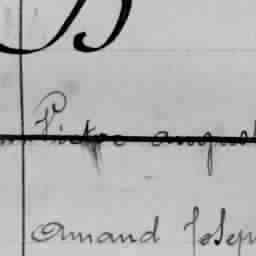 B
Pierre August
Amand Josep